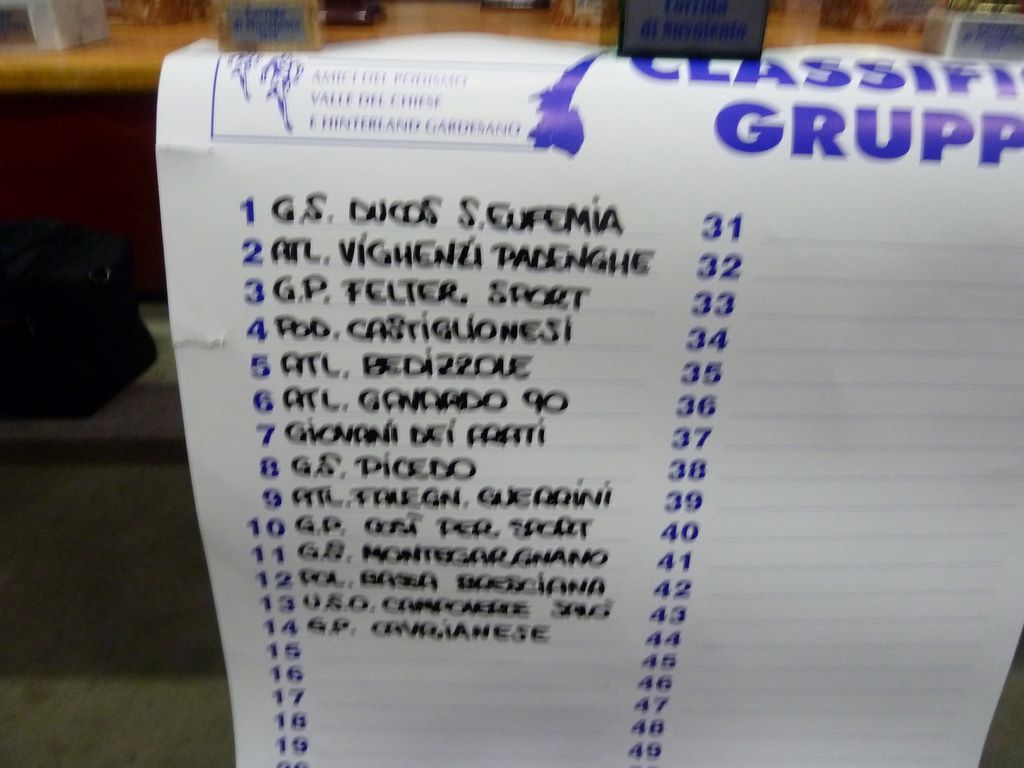 Corrida
di Navolento
Corrida
di Navolento
AMICI DEL PODISMO
VALLE DEL CHIESE
E HINTERLAND GARDESANO
CLASSIFI
GRUPP
1 G.S. DUCOS S.EUFEMIA
2 ATL. VIGHENZI PADENGHE
3 G.P. FELTER. SPORT
4 POD. CASTIGLIONESI
5 ATL. BEDIZZOLE
6 ATL. GAVARDO 90
7 GIOVANI DEI PRATI
8 G.S. PICEDO
9 ATL. FALEGN. GUERRINI
10 G.P. COSÌ PER. SPORT
11 G.S. MONTEGARGNANO
12 POL. BASSA BRESCIANA
13 U.S.O. CAMPOVERDE SALÒ
14 G.P. CAVRIANESE
15
16
17
18
19
20
31
32
33
34
35
36
37
38
39
40
41
42
43
44
45
46
47
48
49